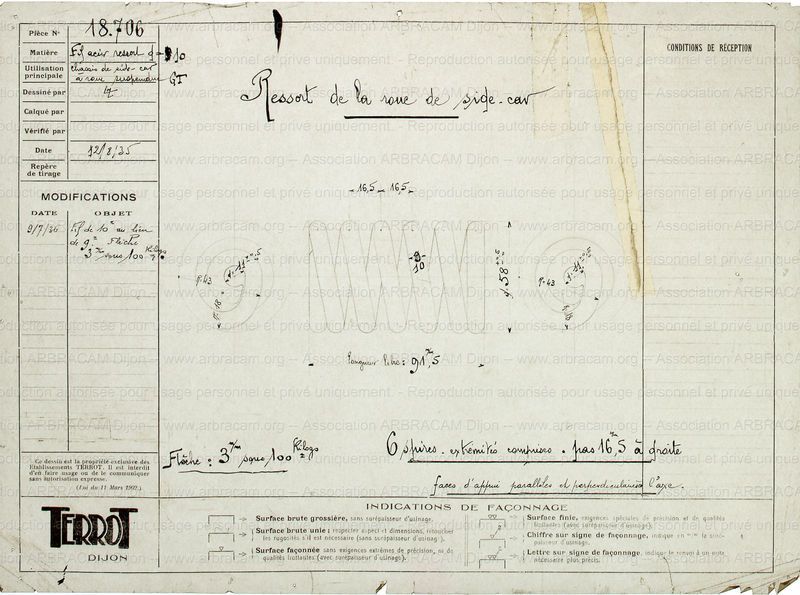 Pièce N° 18.706
Matière Fil acier ressort 10
Utilisation principale Chassis de side-car
à roue suspendue GT
Dessiné par
Calqué par
Vérifié par
Date 12/8/35
Repère de tirage
MODIFICATIONS
DATE OBJET
9/7/36 Fil de 10 au lieu
de 9. Flèche
3 m/m sous 100 Kilogs
Ressort de la roue de side-car
CONDITIONS DE RÉCEPTION
16,5 16,5
9
10
Longueur libre: 91,5
Flèche: 3 m/m sous 100 Kilogs
6 spires. extrémités comprises. pas 16,5 à droite
faces d'appui parallèles et perpendiculaires à l'axe.
Ce dessin est la propriété exclusive des
Etablissements TERROT. Il est interdit
d'en faire usage ou de le communiquer
sans autorisation expresse.
(Loi du 11 Mars 1902.)
TERROT
DIJON
INDICATIONS DE FAÇONNAGE
Surface brute grossière, sans surépaisseur d'usinage.
Surface brute unie; respecter aspect et dimensions, retoucher
les rugosités s'il est nécessaire (sans surépaisseur d'usinage).
Surface façonnée sans exigences extrêmes de précision, ni de
qualités lisitantes (avec surépaisseur d'usinage).
Surface finie, exigences spéciales de précision et de qualités
(avec surépaisseur d'usinage).
Chiffre sur signe de façonnage, indique en m/m la surépaisseur d'usinage.
Lettre sur signe de façonnage, indique le renvoi à une note
nécessaire plus précis.
www.arbracam.org – Association ARBRACAM Dijon – www.arbracam.org – Association ARBRACAM Dijon
Reproduction autorisée pour usage personnel et privé uniquement